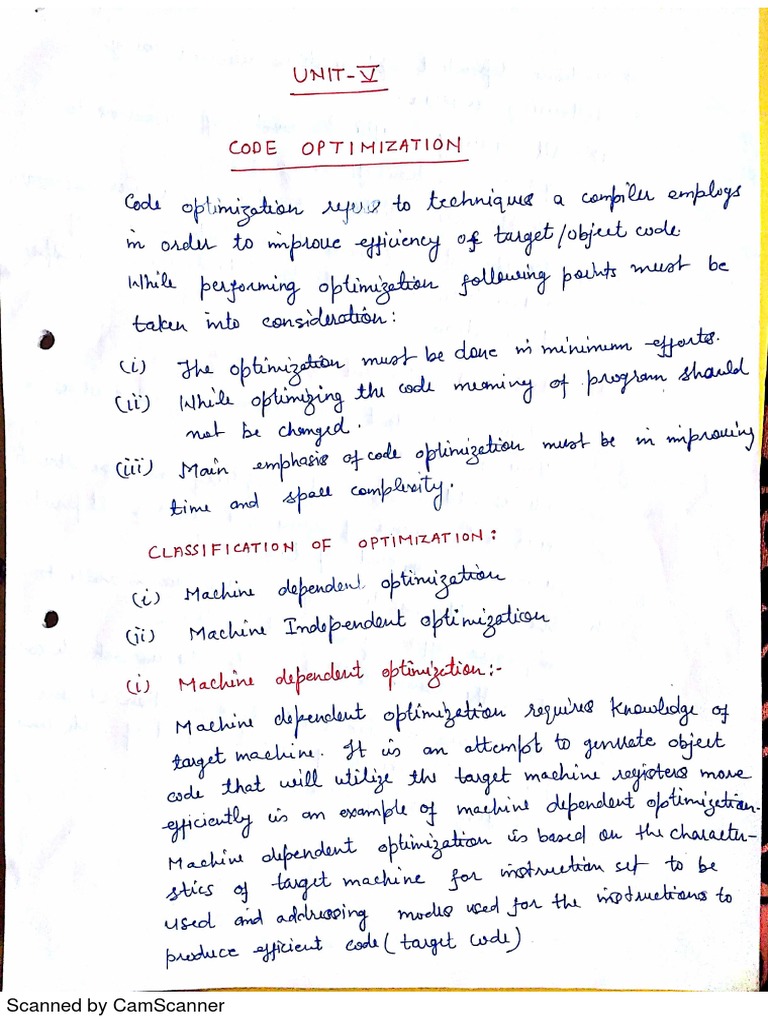 UNIT-V
CODE OPTIMIZATION
Code optimization refers to techniques a compiler employs
in order to improve efficiency of target/object code.
While performing optimization following points must be
taken into consideration:
(i) The optimization must be done in minimum efforts.
(ii) While optimizing the code meaning of program should
not be changed.
(iii) Main emphasis of code optimization must be in improving
time and space complexity.
CLASSIFICATION OF OPTIMIZATION:
(i) Machine dependent optimization
(ii) Machine Independent optimization
(i) Machine dependent optimization:-
Machine dependent optimization requires knowledge of
target machine. It is an attempt to generate object
code that will utilize the target machine registers more
efficiently is an example of machine dependent optimization.
Machine dependent optimization is based on the character-
stics of target machine for instruction set to be
used and addressing modes used for the instructions to
produce efficient code (target code)
Scanned by CamScanner